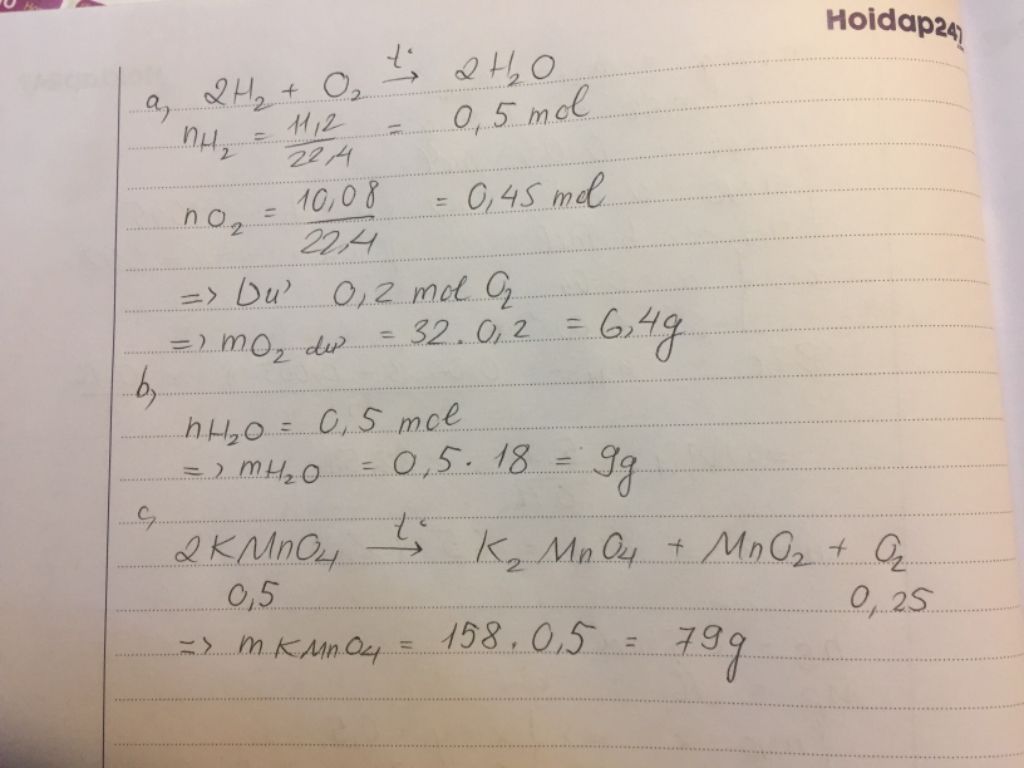 Hoidap247
a, 2H₂ + O₂ →t° 2H₂O
nH₂ = 11,2/22,4 = 0,5 mol
nO₂ = 10,08/22,4 = 0,45 mol
=> Dư 0,2 mol O₂
=> mO₂ dư = 32.0,2 = 6,4g
b,
nH₂O = 0,5 mol
=> mH₂O = 0,5.18 = 9g
c,
2KMnO₄ →t° K₂MnO₄ + MnO₂ + O₂
0,5 0,25
=> mKMnO₄ = 158.0,5 = 79g